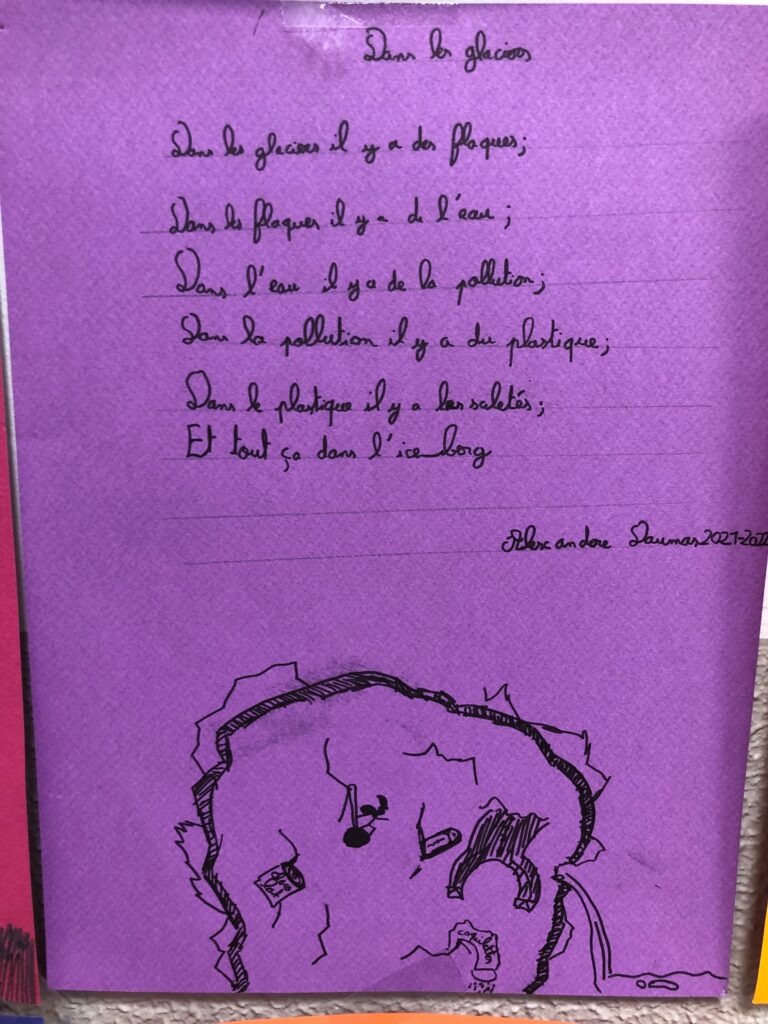 Dans les glaciers
Dans les glaciers il y a des flaques;
Dans les flaques il y a de l'eau;
Dans l'eau il y a de la pollution;
Dans la pollution il y a du plastique;
Dans le plastique il y a les saletés;
Et tout ça dans l'ice_berg
Alexandre Daumas 2021-2022